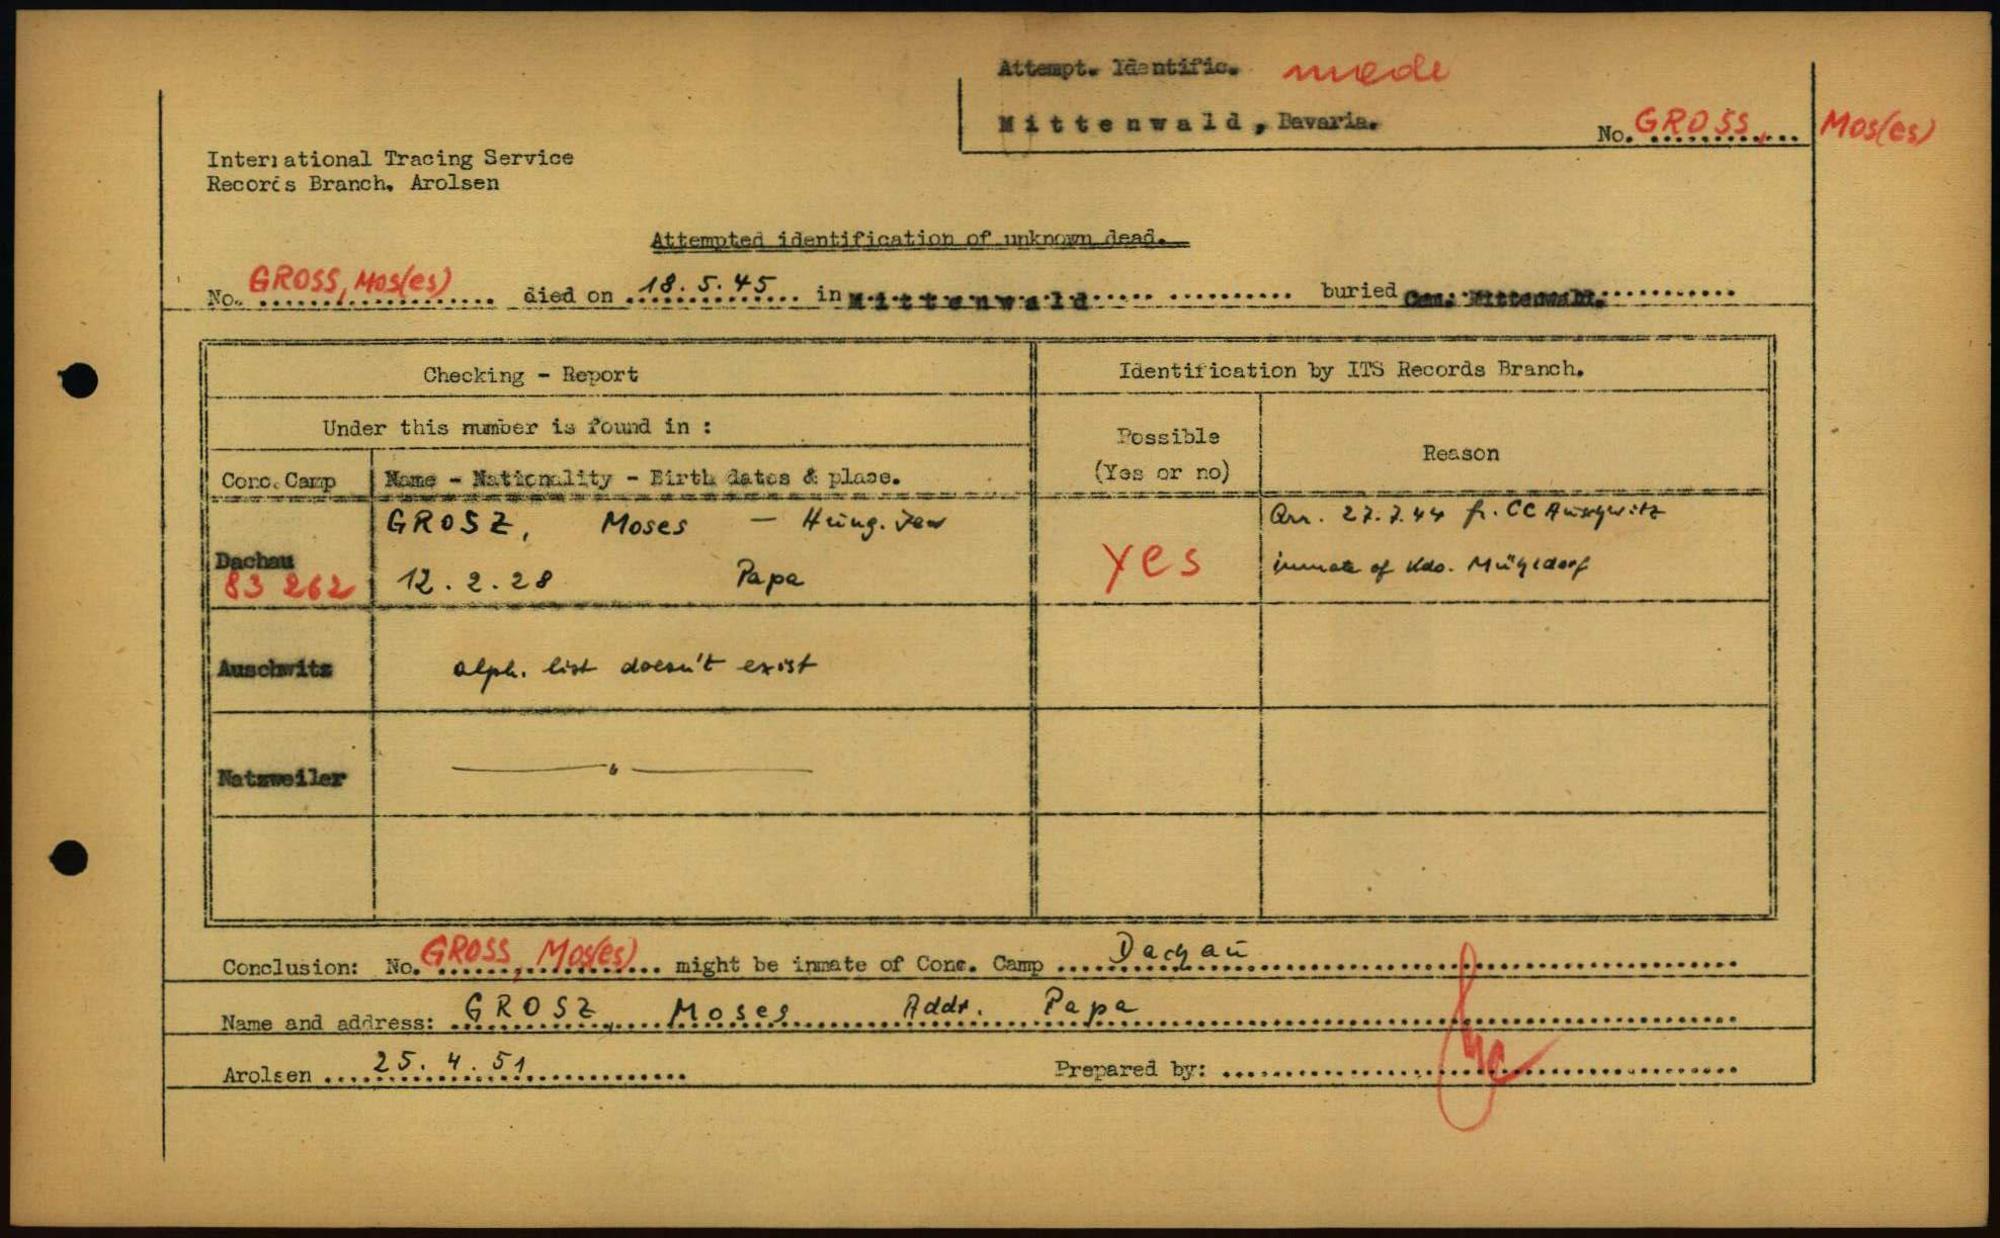 Attempt. Identific. made
Mittenwald, Bavaria.
No. GROSS, Mos(es)
International Tracing Service
Records Branch, Arolsen
Attempted identification of unknown dead.
No. GROSS, Mos(es) died on 18.5.45 in Mittenwald buried Cem. Mittenwald.
Checking - Report
Identification by ITS Records Branch.
Under this number is found in :
Possible
(Yes or no)
Reason
Conc. Camp
Name - Nationality - Birth dates & place.
Dachau
83 262
GROSZ, Moses — Hung. Jew
12.2.28 Papa
Yes
Arr. 27.7.44 fr. CC Auschwitz
inmate of Kdo. Mühldorf
Auschwitz
alph. list doesn't exist
Natzweiler
— " —
Conclusion: No. GROSS, Mos(es) might be inmate of Conc. Camp Dachau
Name and address: GROSZ, Moses Addr. Papa
Arolsen 25.4.51
Prepared by: